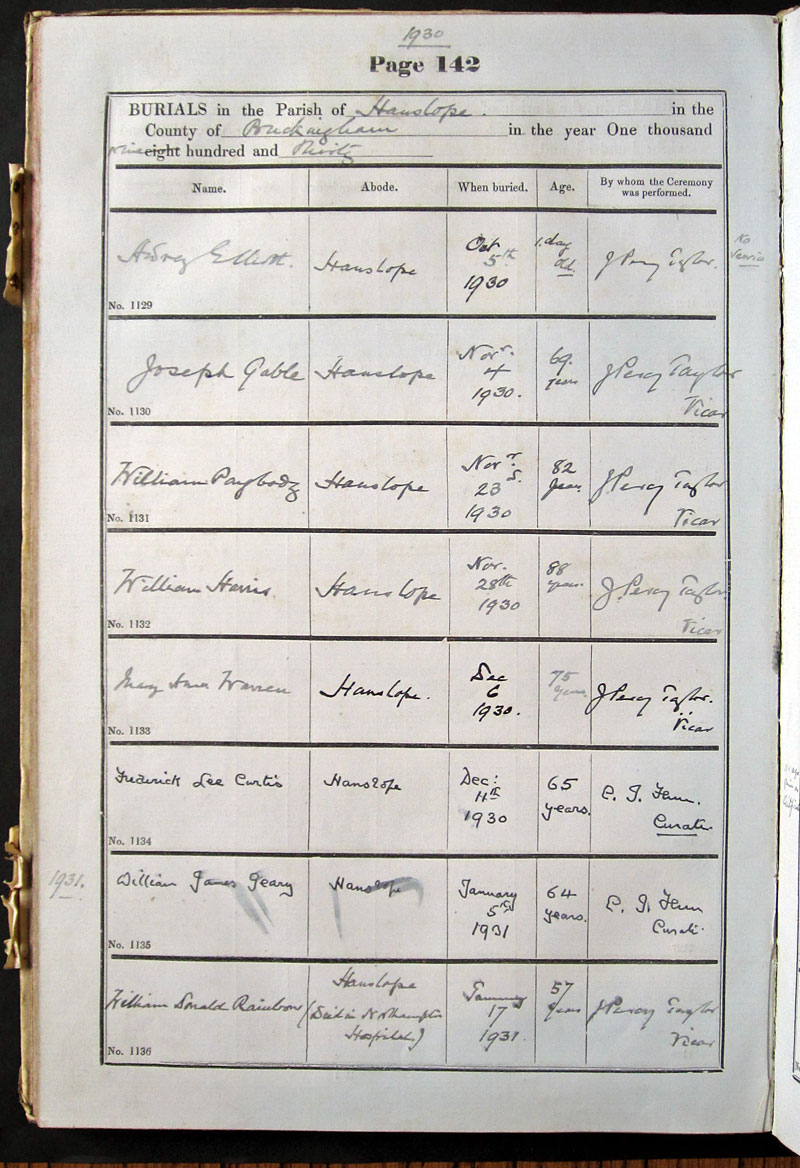 1930
Page 142
BURIALS in the Parish of Hanslope. in the
County of Buckingham in the year One thousand
nine eight hundred and Thirty
Name. Abode. When buried. Age. By whom the Ceremony was performed.
Elliott. Hanslope Oct 5th 1930 1. day old. J Percy Taylor. No
No. 1129
Joseph Gable Hanslope Novr. 4 1930. 69. years J Percy Taylor Vicar
No. 1130
William Paybody Hanslope Novr. 23 1930 82 years J. Percy Taylor Vicar
No. 1131
William Harris Hanslope Nov. 28th 1930 88 years. J. Percy Taylor Vicar
No. 1132
Mary Ann Warren Hanslope. Dec 6 1930. 75 years. J Percy Taylor. Vicar
No. 1133
Frederick Lee Curtis Hanslope Dec: 11th 1930 65 years. Curate.
No. 1134
1931. William James Geary Hanslope January 5th 1931 64 years. Curate.
No. 1135
William Donald Rainbow Hanslope (Died in Northampton Hospital.) January 17 1931. 57 years J Percy Taylor Vicar
No. 1136